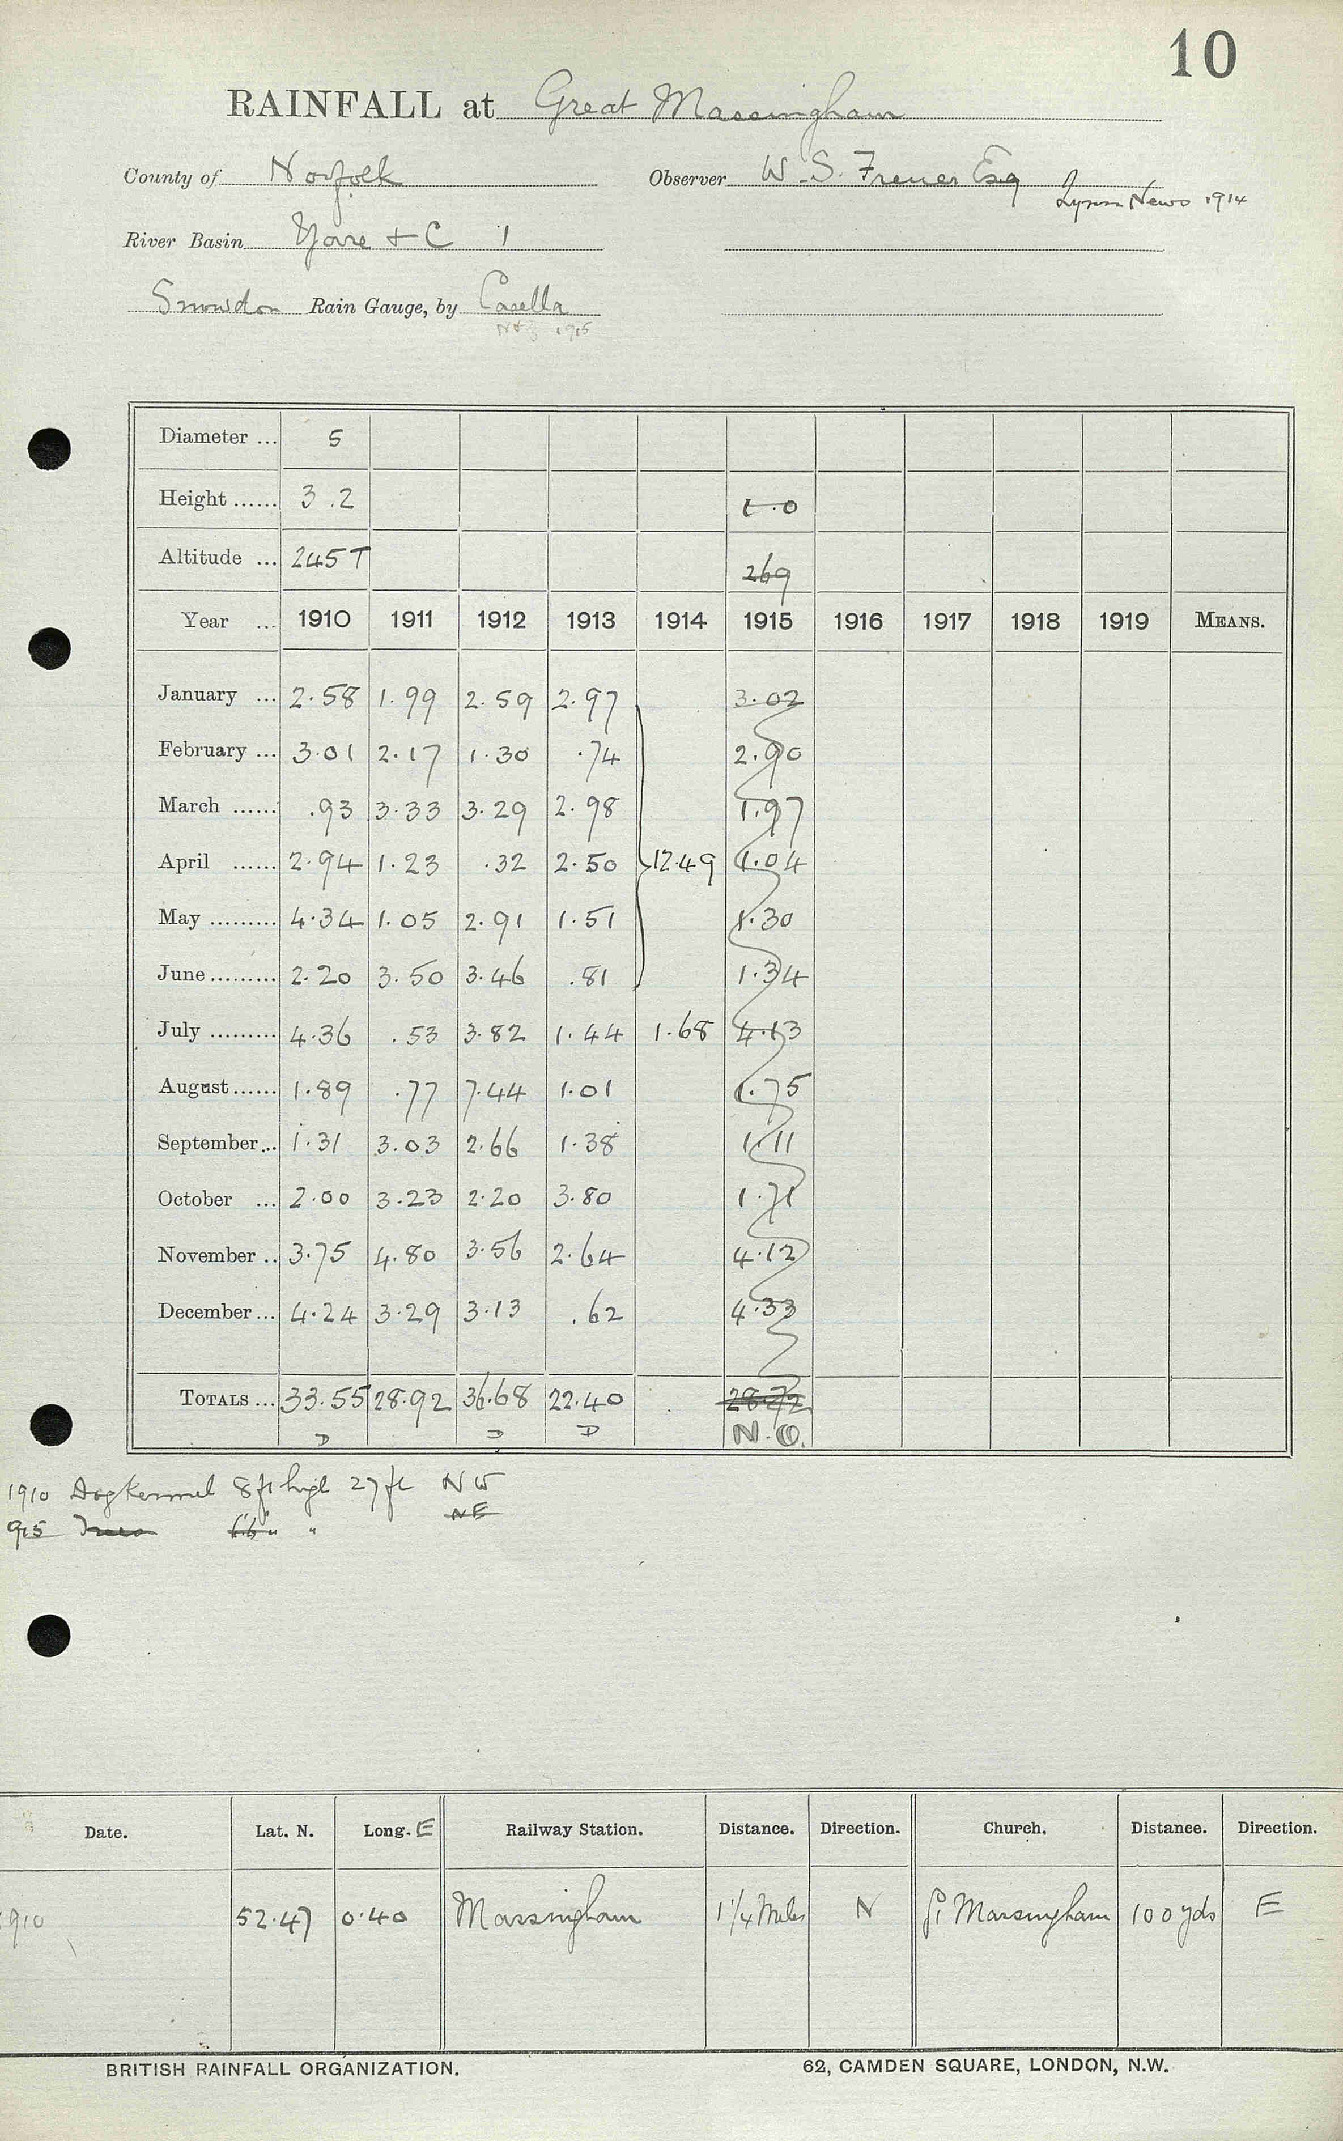 10
RAINFALL at Great Massingham
County of Norfolk Observer W. S. Esq
Lynn News 1914
River Basin Yare + C 1
Snowdon Rain Gauge, by Casella
1915
Diameter ... 5
Height ...... 3.2 1.0
Altitude ... 245 T 269
Year ... 1910 1911 1912 1913 1914 1915 1916 1917 1918 1919 MEANS.
January ... 2.58 1.99 2.59 2.97 3.02
February ... 3.01 2.17 1.30 .74 2.90
March ...... .93 3.33 3.29 2.98 1.97
April ...... 2.94 1.23 .32 2.50 12.49 1.04
May ......... 4.34 1.05 2.91 1.51 1.30
June ......... 2.20 3.50 3.46 .81 1.34
July ......... 4.36 .53 3.82 1.44 1.68 4.13
August ...... 1.89 .77 7.44 1.01 1.75
September ... 1.31 3.03 2.66 1.38 1.11
October ... 2.00 3.23 2.20 3.80 1.71
November .. 3.75 4.80 3.56 2.64 4.12
December ... 4.24 3.29 3.13 .62 4.33
TOTALS ... 33.55 28.92 36.68 22.40 28.72
D D D N.O.
1910 Dog Kennel 8 ft high 27 ft NW
915 Trees " " NE
Date. Lat. N. Long. E Railway Station. Distance. Direction. Church. Distance. Direction.
1910 52.47 0.40 Massingham 1 1/4 Miles N Gt Massingham 100 yds E
BRITISH RAINFALL ORGANIZATION. 62, CAMDEN SQUARE, LONDON, N.W.